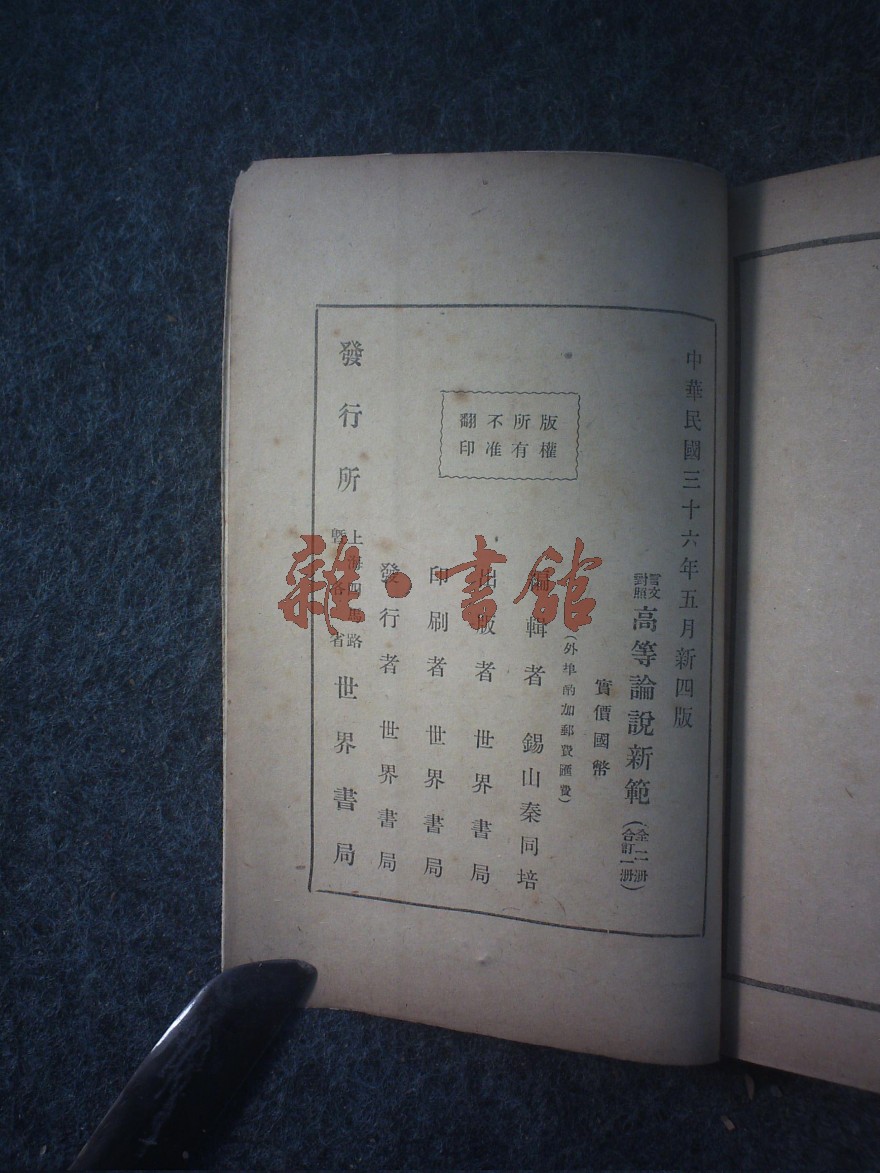 中華民國三十六年五月新四版
言文對照 高等論說新範（全二册合訂一册）
實價國幣
（外埠酌加郵費匯費）
編輯者 錫山秦同培
出版者 世界書局
印刷者 世界書局
發行者 世界書局
發行所 上海四馬路暨各省 世界書局
版權
所有
不准
翻印
雜·書館